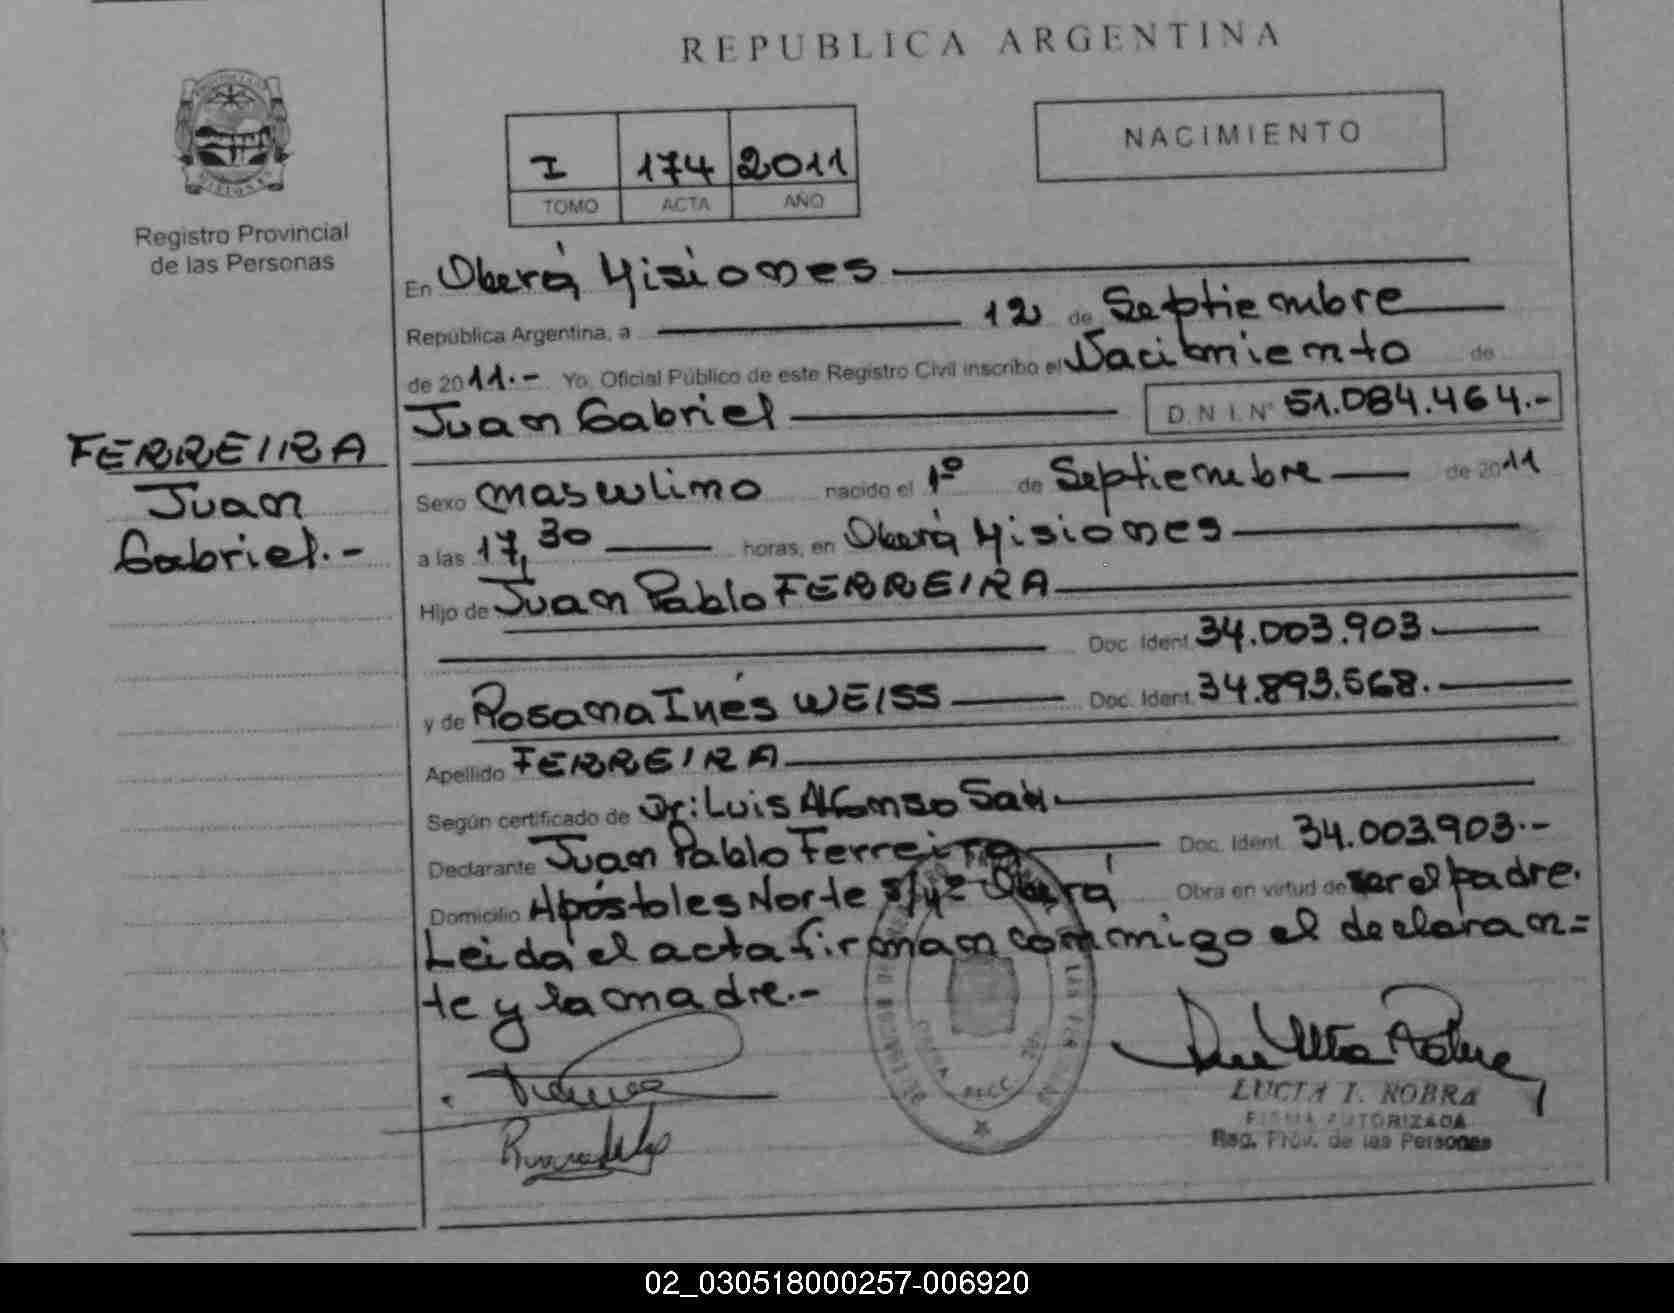 REPUBLICA ARGENTINA
NACIMIENTO
I 174 2011
TOMO ACTA AÑO
MISIONES
Registro Provincial
de las Personas
FERREIRA
Juan
Gabriel.-
En Oberá, Misiones
República Argentina, a 12 de Septiembre
de 2011.- Yo, Oficial Público de este Registro Civil inscribo el Nacimiento de
Juan Gabriel D.N.I. Nº 51.084.464.-
Sexo masculino nacido el 1º de Septiembre de 2011
a las 17,30 horas, en Oberá, Misiones
Hijo de Juan Pablo FERREIRA
Doc. Ident. 34.003.903.
y de Rosana Inés WEISS Doc. Ident. 34.893.568.
Apellido FERREIRA
Según certificado de Dr: Luis Alfonso
Declarante Juan Pablo Ferreira Doc. Ident. 34.003.903.-
Domicilio Apóstoles Norte Oberá Obra en virtud de ser el padre.
Leida el acta firman conmigo el declaran=
te y la madre.-
LUCIA I. ROBRA
FIRMA AUTORIZADA
Reg. Prov. de las Personas
02_030518000257-006920